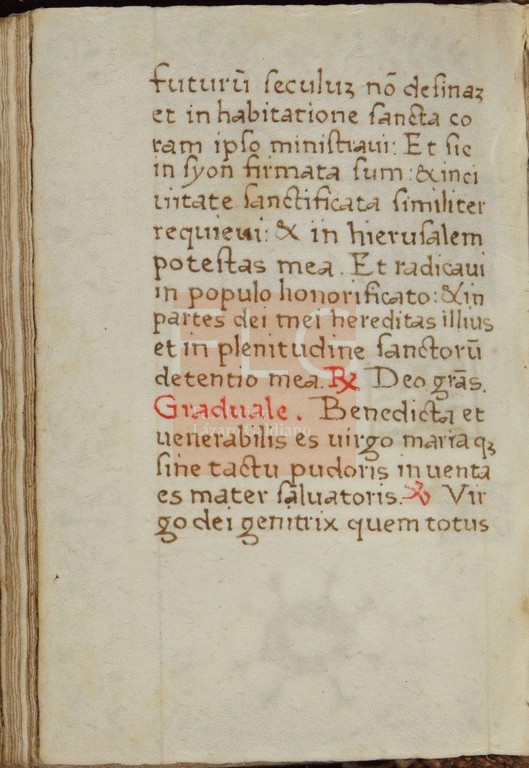 futurū seculuʒ nō desinaʒ
et in habitatione sancta co
ram ipso ministraui: Et sic
in syon firmata sum: & inci
uitate sanctificata similiter
requieui: & in hierusalem
potestas mea. Et radicaui
in populo honorificato: & in
partes dei mei hereditas illius
et in plenitudine sanctorū
detentio mea. ℟ Deo grās.
Graduale. Benedicta et
uenerabilis es uirgo maria qʒ
sine tactu pudoris inuenta
es mater saluatoris. ℣ Vir
go dei genitrix quem totus
FLG
Lázaro Galdiano